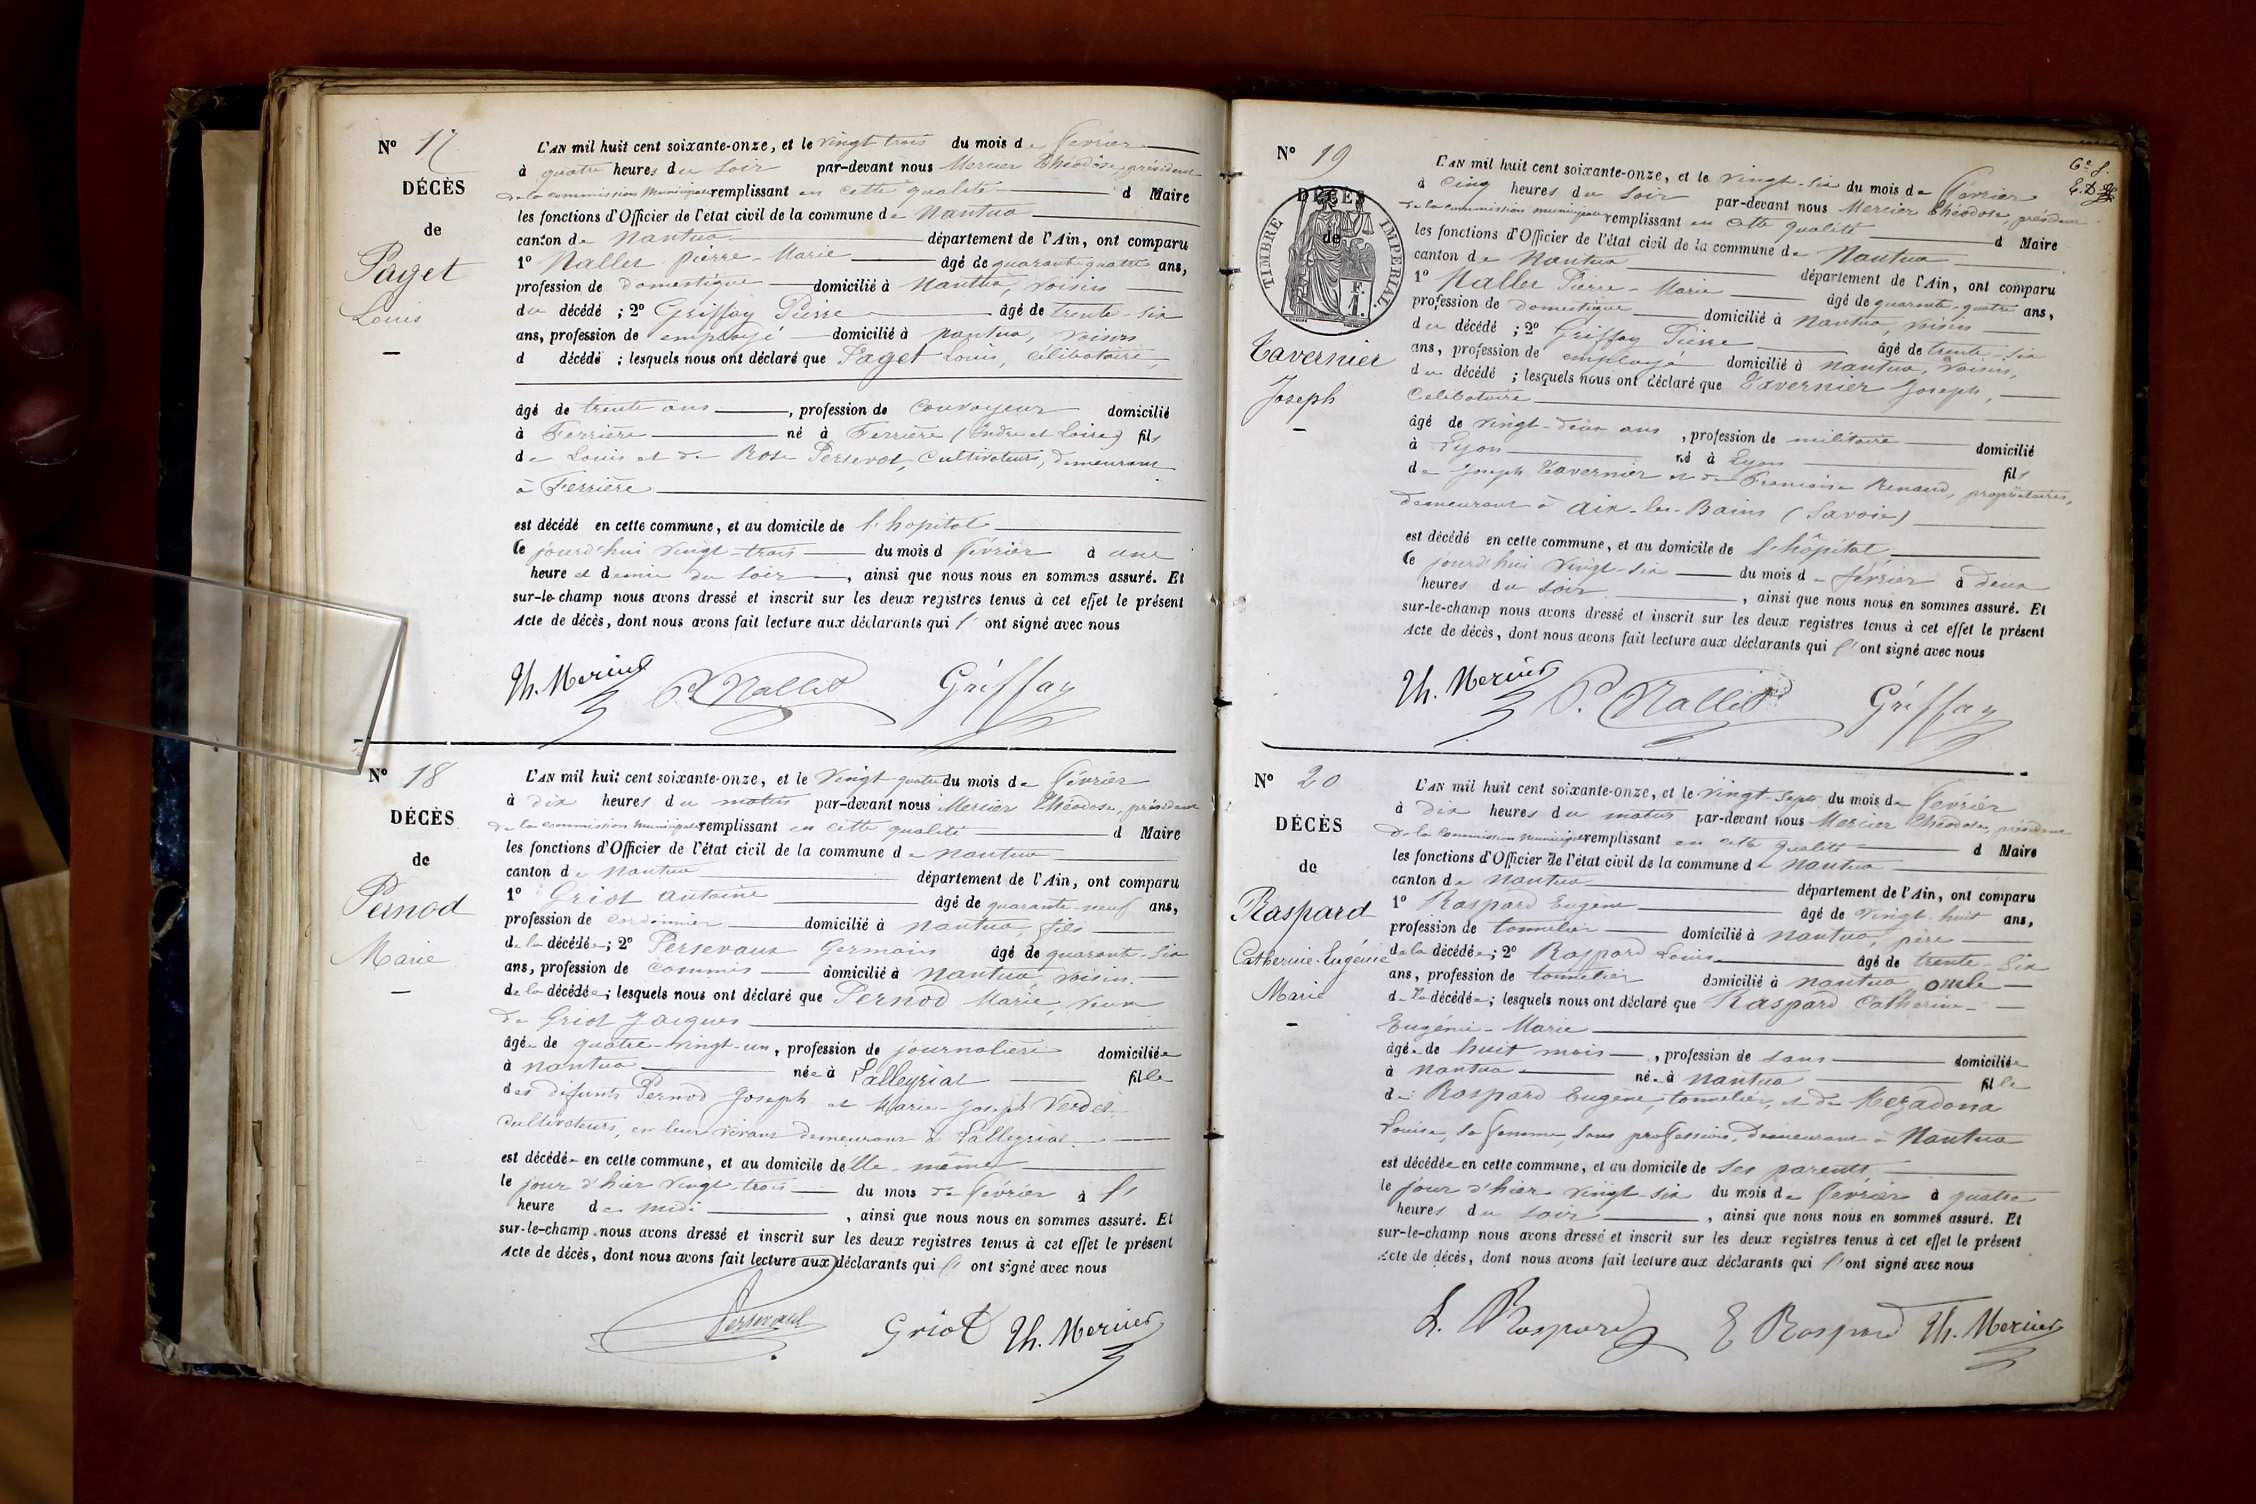 N° 17
DÉCÈS
de
Paget
Louis
L'AN mil huit cent soixante-onze, et le vingt trois du mois de Février
à quatre heures du soir par-devant nous Mercier Théodose, président
de la commission municipale remplissant en cette qualité d Maire
les fonctions d'Officier de l'état civil de la commune de Nantua
canton de Nantua département de l'Ain, ont comparu
1° Nallet Pierre-Marie âgé de quarante quatre ans,
profession de domestique domicilié à Nantua, voisin
du décédé ; 2° Griffay Pierre âgé de trente-six
ans, profession de employé domicilié à Nantua, voisin
d décédé ; lesquels nous ont déclaré que Paget Louis, célibataire,
âgé de trente ans, profession de convoyeur domicilié
à Ferrière né à Ferrière (Indre et Loire) fils
de Louis et de Rose Perserot, cultivateurs, demeurant
à Ferrière
est décédé en cette commune, et au domicile de l'hopital
le jourd'hui vingt-trois du mois d février à une
heure et demie du soir, ainsi que nous nous en sommes assuré. Et
sur-le-champ nous avons dressé et inscrit sur les deux registres tenus à cet effet le présent
Acte de décès, dont nous avons fait lecture aux déclarants qui l' ont signé avec nous
Th. Mercier P. Nallet Griffay
N° 18
DÉCÈS
de
Pernod
Marie
L'AN mil huit cent soixante-onze, et le vingt-quatre du mois de Février
à dix heures du matin par-devant nous Mercier Théodose, président
de la commission municipale remplissant en cette qualité d Maire
les fonctions d'Officier de l'état civil de la commune de Nantua
canton de Nantua département de l'Ain, ont comparu
1° Griot Antoine âgé de quarante-neuf ans,
profession de cordonnier domicilié à Nantua, fils
de la décédée ; 2° Persevaux Germain âgé de quarante-six
ans, profession de commis domicilié à Nantua, voisin
de la décédée ; lesquels nous ont déclaré que Pernod Marie, veuve
de Griot Jacques
âgée de quatre-vingt-un, profession de journalière domiciliée
à Nantua née à Lalleyriat fille
des défunts Pernod Joseph et Marie-Joseph Verdet
cultivateurs, en leur vivant demeurant à Lalleyriat
est décédée en cette commune, et au domicile d'elle-même
le jour d'hier vingt-trois du mois de Février à l'
heure de midi, ainsi que nous nous en sommes assuré. Et
sur-le-champ nous avons dressé et inscrit sur les deux registres tenus à cet effet le présent
Acte de décès, dont nous avons fait lecture aux déclarants qui l' ont signé avec nous
Griot Th. Mercier
N° 19
DÉCÈS
de
TIMBRE IMPERIAL
Tavernier
Joseph
L'AN mil huit cent soixante-onze, et le vingt-six du mois de Février
à cinq heures du soir par-devant nous Mercier Théodose, président
de la commission municipale remplissant en cette qualité d Maire
les fonctions d'Officier de l'état civil de la commune de Nantua
canton de Nantua département de l'Ain, ont comparu
1° Nallet Pierre-Marie âgé de quarante-quatre ans,
profession de domestique domicilié à Nantua, voisin
du décédé ; 2° Griffay Pierre âgé de trente-six
ans, profession de employé domicilié à Nantua, voisin,
du décédé ; lesquels nous ont déclaré que Tavernier Joseph,
célibataire
âgé de vingt-deux ans, profession de militaire domicilié
à Lyon né à Lyon fils
de Joseph Tavernier et de Françoise Renaud, propriétaires,
demeurant à Aix-les-Bains (Savoie)
est décédé en cette commune, et au domicile de l'hôpital
le jourd'hui vingt-six du mois de février à deux
heures du soir, ainsi que nous nous en sommes assuré. Et
sur-le-champ nous avons dressé et inscrit sur les deux registres tenus à cet effet le présent
Acte de décès, dont nous avons fait lecture aux déclarants qui l' ont signé avec nous
Th. Mercier P. Nallet Griffay
N° 20
DÉCÈS
de
Raspard
Catherine-Eugénie
Marie
L'AN mil huit cent soixante-onze, et le vingt-sept du mois de Février
à dix heures du matin par-devant nous Mercier Théodose, président
de la commission municipale remplissant en cette qualité d Maire
les fonctions d'Officier de l'état civil de la commune de Nantua
canton de Nantua département de l'Ain, ont comparu
1° Raspard Eugène âgé de vingt-huit ans,
profession de tonnelier domicilié à Nantua, père
de la décédée ; 2° Raspard Louis âgé de trente-six
ans, profession de tonnelier domicilié à Nantua oncle
de la décédée ; lesquels nous ont déclaré que Raspard Catherine-
Eugénie-Marie
âgée de huit mois, profession de sans domiciliée
à Nantua née à Nantua fille
de Raspard Eugène, tonnelier, et de Mezadona
Louise, sa femme, sans profession, demeurant à Nantua
est décédée en cette commune, et au domicile de ses parents
le jour d'hier vingt-six du mois de Février à quatre
heures du soir, ainsi que nous nous en sommes assuré. Et
sur-le-champ nous avons dressé et inscrit sur les deux registres tenus à cet effet le présent
Acte de décès, dont nous avons fait lecture aux déclarants qui l' ont signé avec nous
L. Raspard E Raspard Th. Mercier